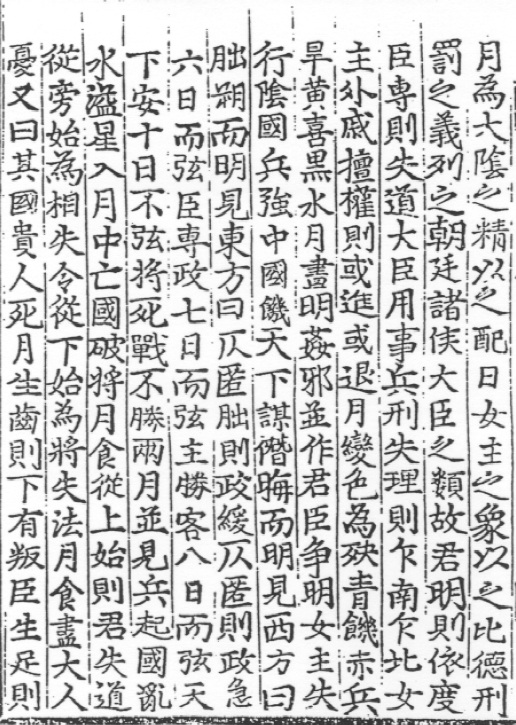 月為大隂之精以之配日女主之象以之比德刑
罰之義列之朝廷諸侯大臣之類故君明則依度
臣專則失道大臣用事兵刑失理則乍南乍北女
主外戚擅權則或進或退月變色為殃青饑赤兵
旱黃喜黒水月盡明姦邪並作君臣爭明女主失
行隂國兵強中國饑天下謀僭晦而明見西方曰
朏朔而明見東方曰仄匿朏則政緩仄匿則政急
六日而弦臣專政七日而弦主勝客八日而弦天
下安十日不弦將死戰不勝兩月並見兵起國亂
水溢星入月中亡國破將月食從上始則君失道
從旁始為相失令從下始為將失法月食盡大人
憂又曰其國貴人死月生齒則下有叛臣生足則